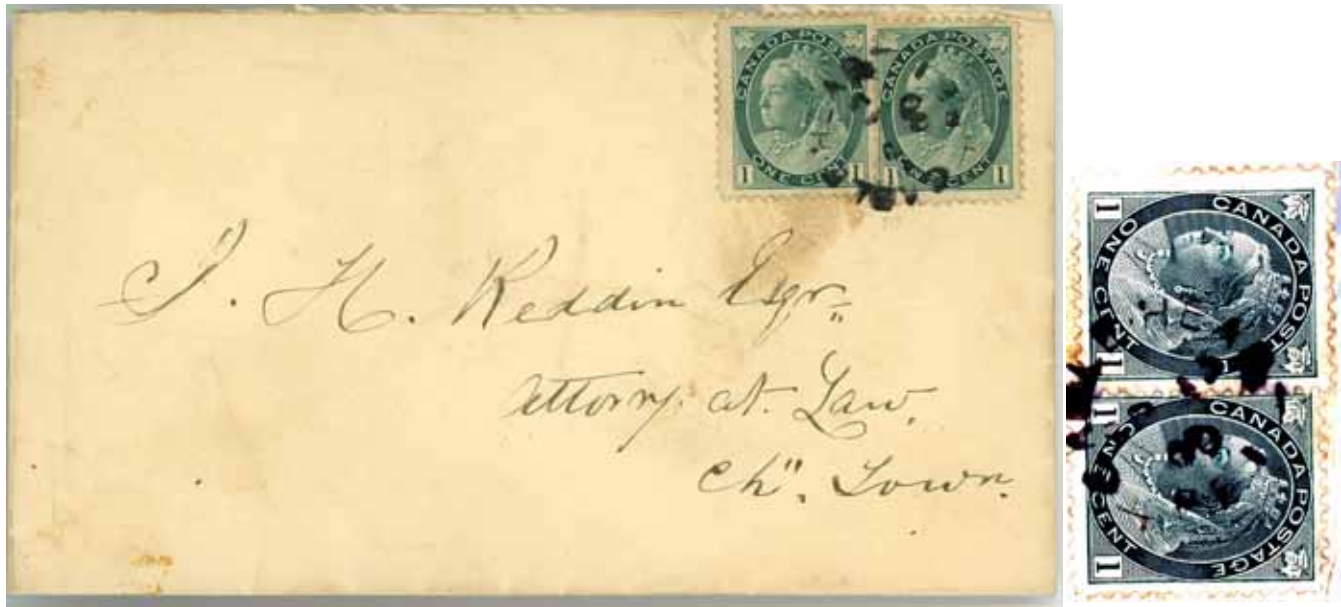 CANADA POSTAGE
ONE CENT
1 1
CANADA POSTAGE
ONE CENT
1 1
J. H. Reddin Esqr.
Attorny. at. Law.
Ch". Town.
CANADA POST
ONE CENT
1 1
CANADA POSTAGE
ONE CENT
1 1